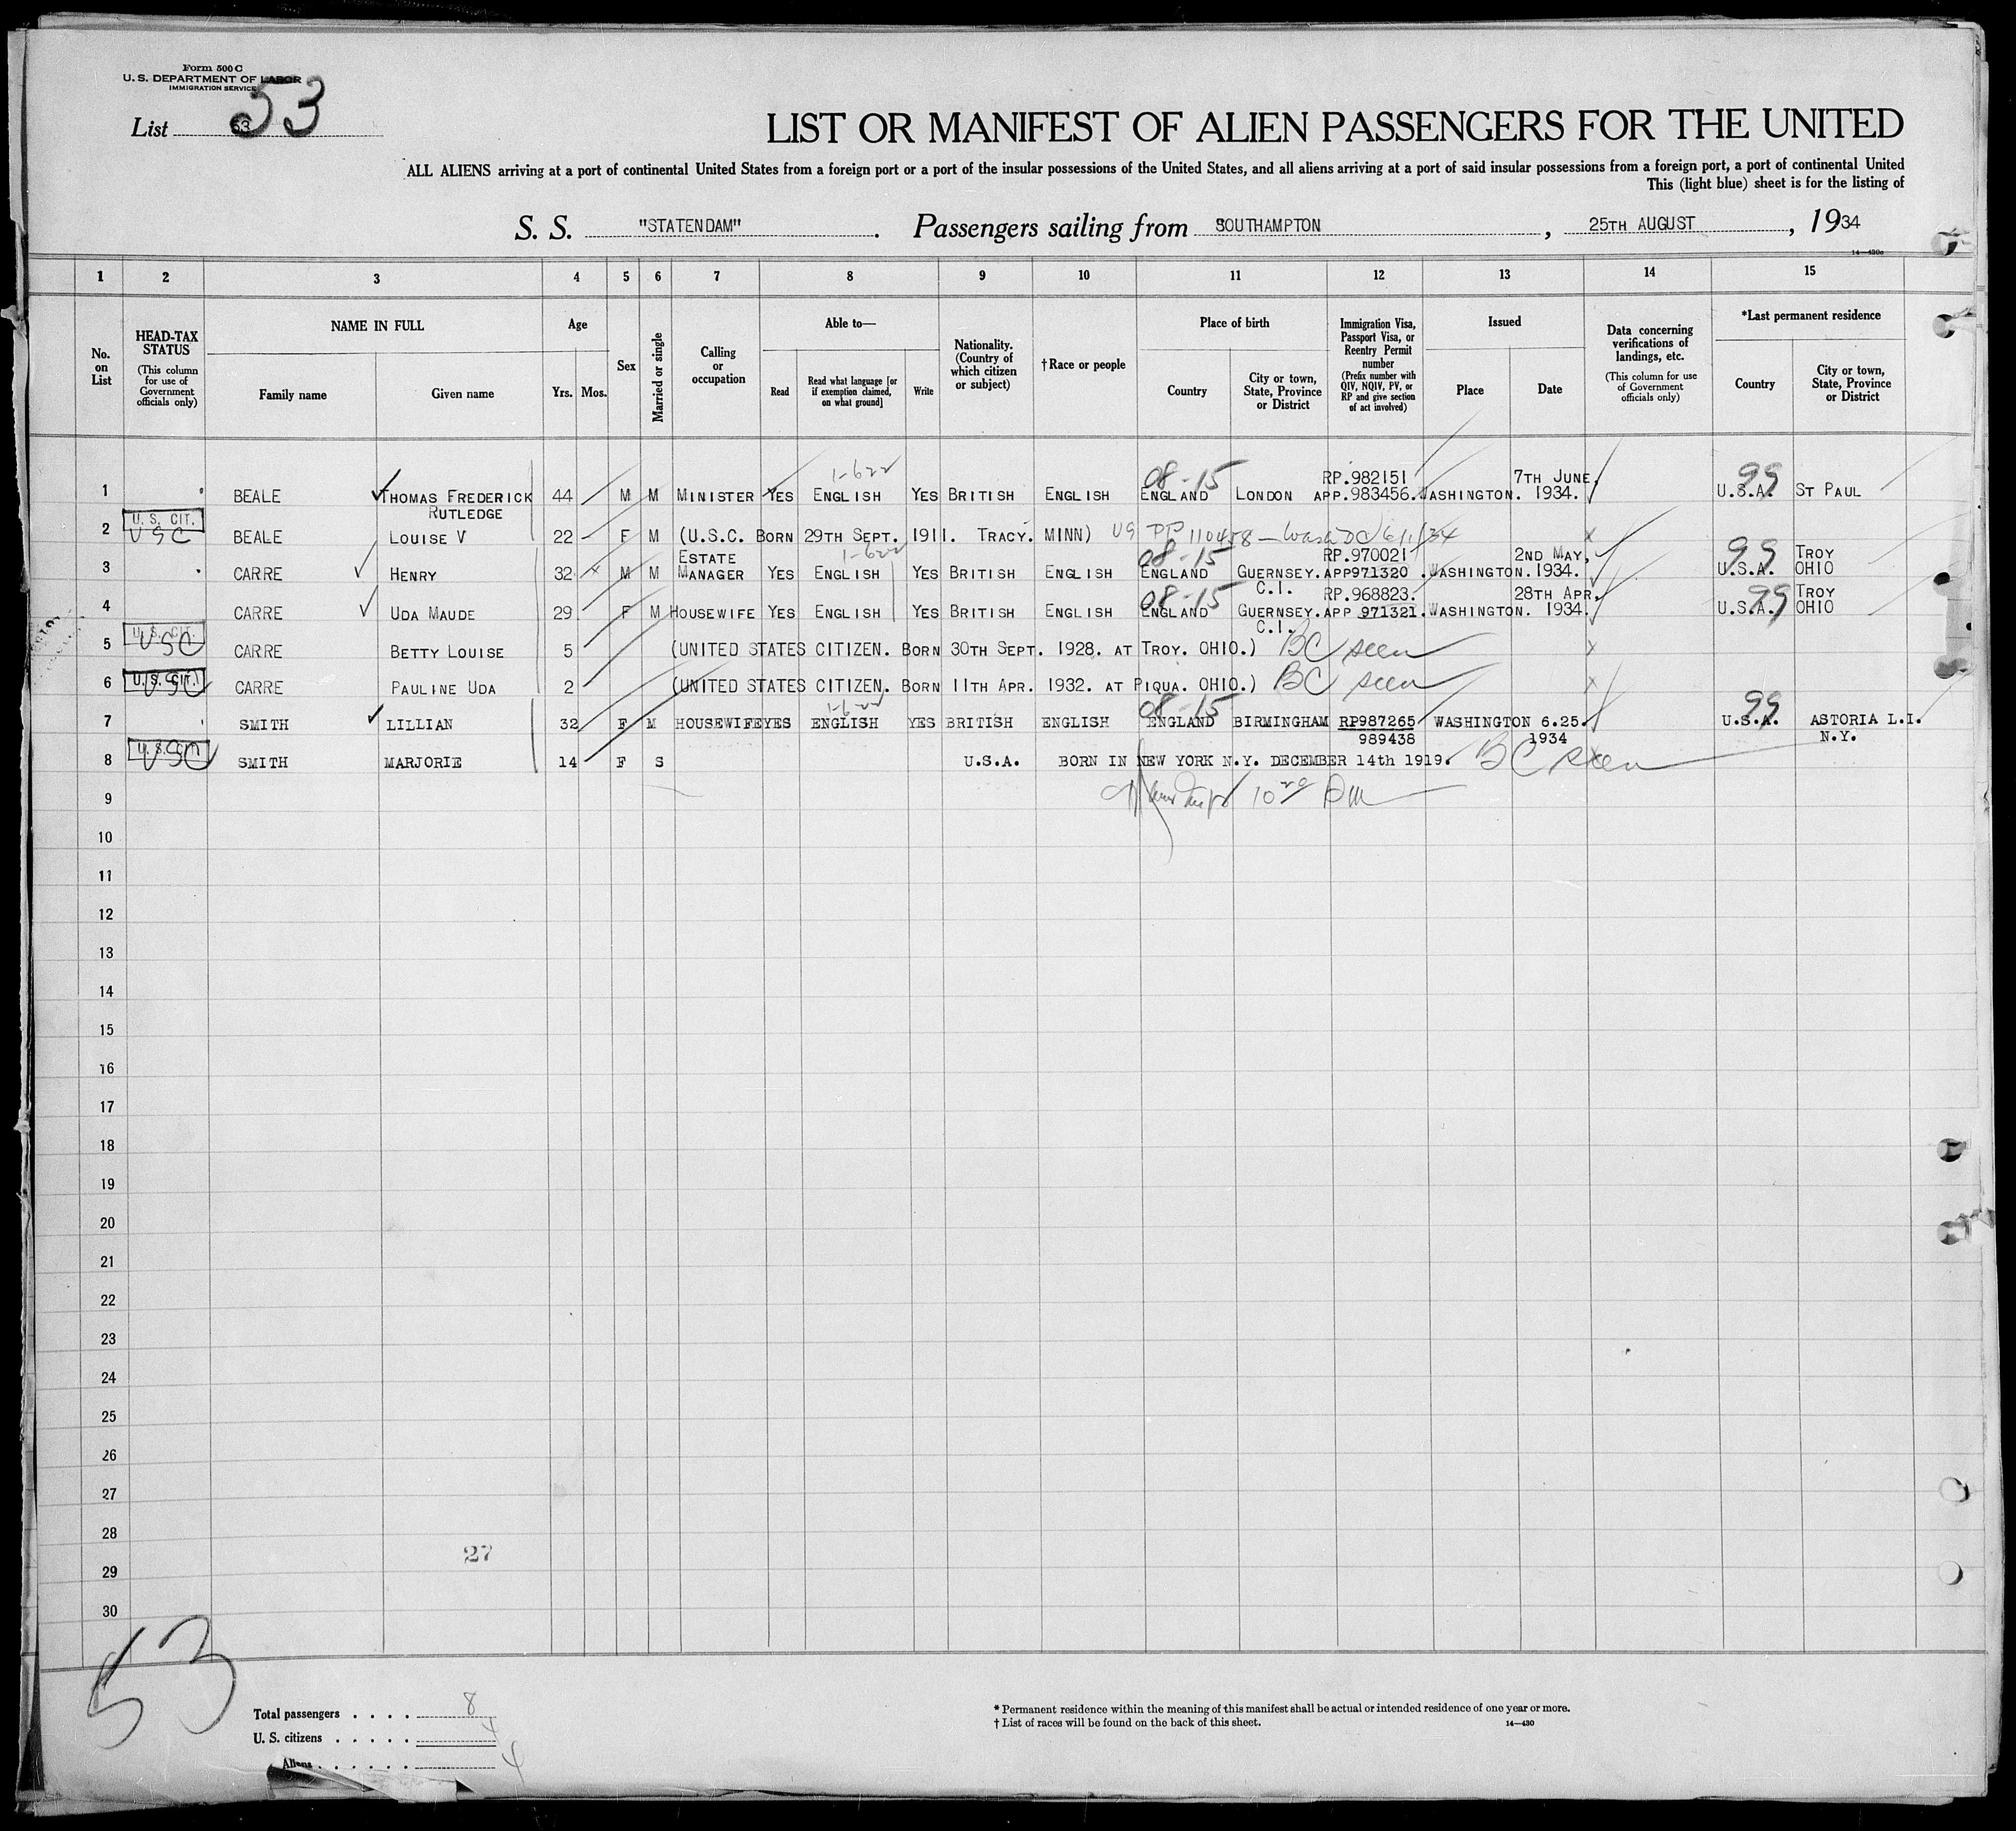 Form 500 C
U. S. DEPARTMENT OF LABOR
IMMIGRATION SERVICE
List 53 53
LIST OR MANIFEST OF ALIEN PASSENGERS FOR THE UNITED
ALL ALIENS arriving at a port of continental United States from a foreign port or a port of the insular possessions of the United States, and all aliens arriving at a port of said insular possessions from a foreign port, a port of continental United
This (light blue) sheet is for the listing of
S. S. "STATENDAM". Passengers sailing from SOUTHAMPTON, 25TH AUGUST, 1934
14—430c
1 2 3 4 5 6 7 8 9 10 11 12 13 14 15
No. on List
HEAD-TAX STATUS
(This column for use of Government officials only)
NAME IN FULL
Family name Given name
Age
Yrs. Mos.
Sex
Married or single
Calling or occupation
Able to—
Read Read what language [or if exemption claimed, on what ground] Write
Nationality. (Country of which citizen or subject)
†Race or people
Place of birth
Country City or town, State, Province or District
Immigration Visa, Passport Visa, or Reentry Permit number
(Prefix number with QIV, NQIV, PV, or RP and give section of act involved)
Issued
Place Date
Data concerning verifications of landings, etc.
(This column for use of Government officials only)
*Last permanent residence
Country City or town, State, Province or District
1-622 08-15 RP.982151 7TH JUNE, 99
1 BEALE THOMAS FREDERICK 44 M M MINISTER YES ENGLISH YES BRITISH ENGLISH ENGLAND LONDON APP.983456. WASHINGTON. 1934. U.S.A. ST PAUL
RUTLEDGE
U. S. CIT.
2 USC BEALE LOUISE V 22 F M (U.S.C. BORN 29TH SEPT. 1911. TRACY. MINN) US PP 110458 — Wash DC 6/1/34
ESTATE 1-622 08-15 RP.970021 2ND MAY, 99 TROY
3 CARRE HENRY 32 M M MANAGER YES ENGLISH YES BRITISH ENGLISH ENGLAND GUERNSEY. APP971320. WASHINGTON. 1934. U.S.A. OHIO
C.I. RP.968823. 28TH APR. TROY
4 CARRE UDA MAUDE 29 F M HOUSEWIFE YES ENGLISH YES BRITISH ENGLISH 08-15 ENGLAND GUERNSEY. APP 971321. WASHINGTON. 1934. U.S.A. 99 OHIO
C.I.
U. S. CIT.
5 USC CARRE BETTY LOUISE 5 (UNITED STATES CITIZEN. BORN 30TH SEPT. 1928. AT TROY. OHIO.) BC seen
U. S. CIT.
6 USC CARRE PAULINE UDA 2 (UNITED STATES CITIZEN. BORN 11TH APR. 1932. AT PIQUA. OHIO.) BC seen
1-622 08-15 99
7 SMITH LILLIAN 32 F M HOUSEWIFE YES ENGLISH YES BRITISH ENGLISH ENGLAND BIRMINGHAM RP987265 WASHINGTON 6.25. U.S.A. ASTORIA L.I.
989438 1934 N.Y.
U. S. CIT.
8 USC SMITH MARJORIE 14 F S U.S.A. BORN IN NEW YORK N.Y. DECEMBER 14th 1919. BC seen
9
10
11
12
13
14
15
16
17
18
19
20
21
22
23
24
25
26
27
28
27
29
30
53
Total passengers . . . . 8
U. S. citizens . . . . . 4
Aliens . . . . . . 4
* Permanent residence within the meaning of this manifest shall be actual or intended residence of one year or more.
† List of races will be found on the back of this sheet.
14—430